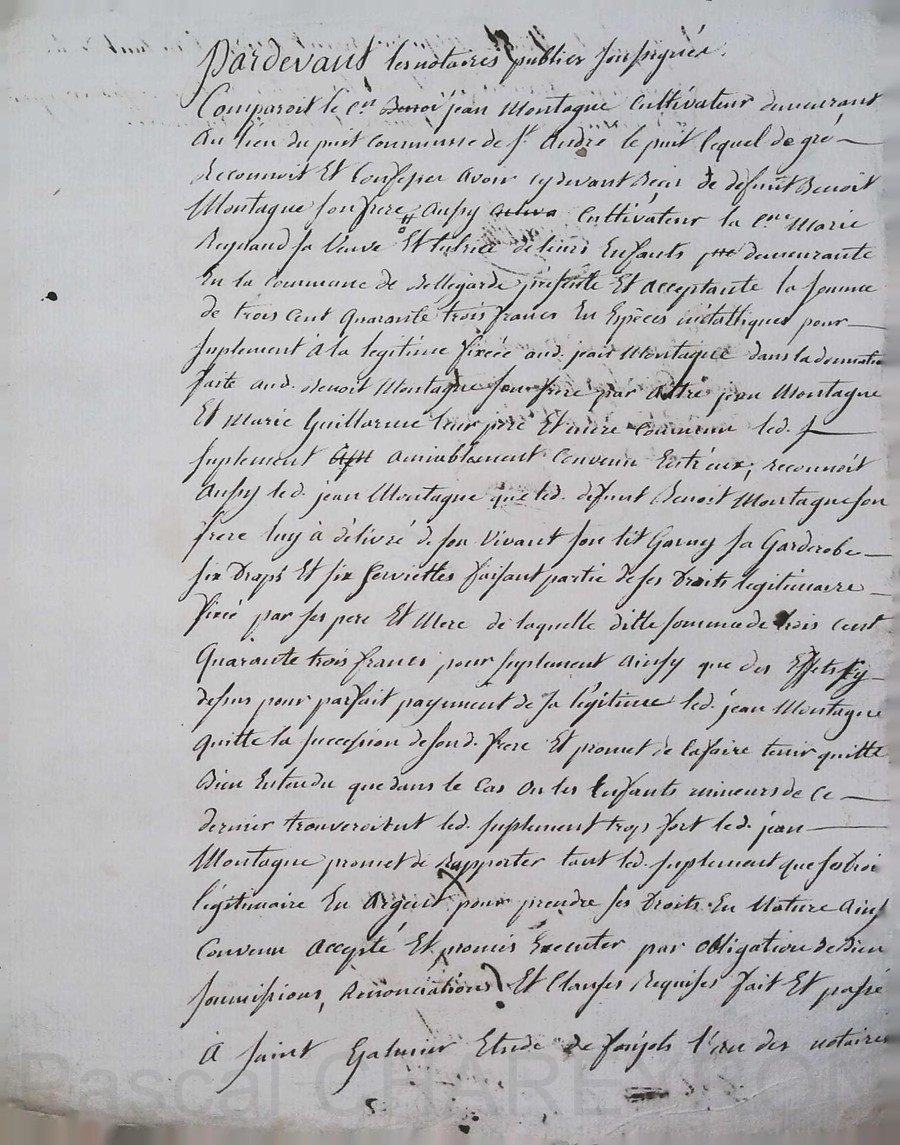 Pardevant les notaires publics soussignés.
Comparoit le c.en Benoi jean Montagne Cultivateur demeurant
Au lieu du puit commune de S.t André le puit lequel de gré
Reconnoit Et Confesse avoir cy devant Recu de défunt Benoit
Montagne son frere Aussy Cultivateur la C.ne Marie
Reynaud sa Veuve Et tutrice de leurs Enfants demeurante
En la Commune de Bellegarde présente Et acceptante la somme
de trois Cent Quarante trois francs En Espèces métalliques pour
suplement A la legitime fixée aud. jean Montagne dans la donnation
faite aud. Benoit Montagne son frere par Autre jean Montagne
Et Marie Guillarme leur pere Et mere commun led.
suplement amiablement Convenu Entreux, reconnoit
Aussy led. jean Montagne que led. defunt Benoit Montagne son
frere luy à délivré de son Vivant son lit Garny sa Garderobe
six Draps Et six serviettes faisant partie de ses Droits legitimaire
fixé par ses pere Et Mere de laquelle ditte somme de trois cent
Quarante trois francs pour suplement ainsy que des Effets cy
dessus pour parfait payement de sa légitime led. jean Montagne
Quitte la succession de sond. frere Et promet de la faire tenir quitte
Bien Entendu que dans le Cas ou les Enfants mineurs de Ce
dernier trouveroient led. suplement trop fort led. jean
Montagne promet de rapporter tant led. suplement que ses Droi
légitimaire En Argent pour prendre ses Droits En Nature Ainsy
Convenu Accepté Et promis Executer par obligation de Bien
soumissions, Renonciations Et Clauses Requises fait Et passé
A saint Galmier Etude de l'un des notaires
Pascal CHAREYRON